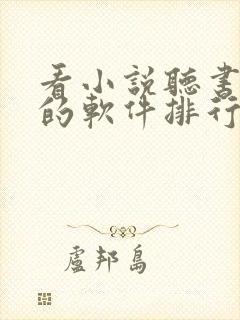 看小說聽書
的軟件排行
盧邦島